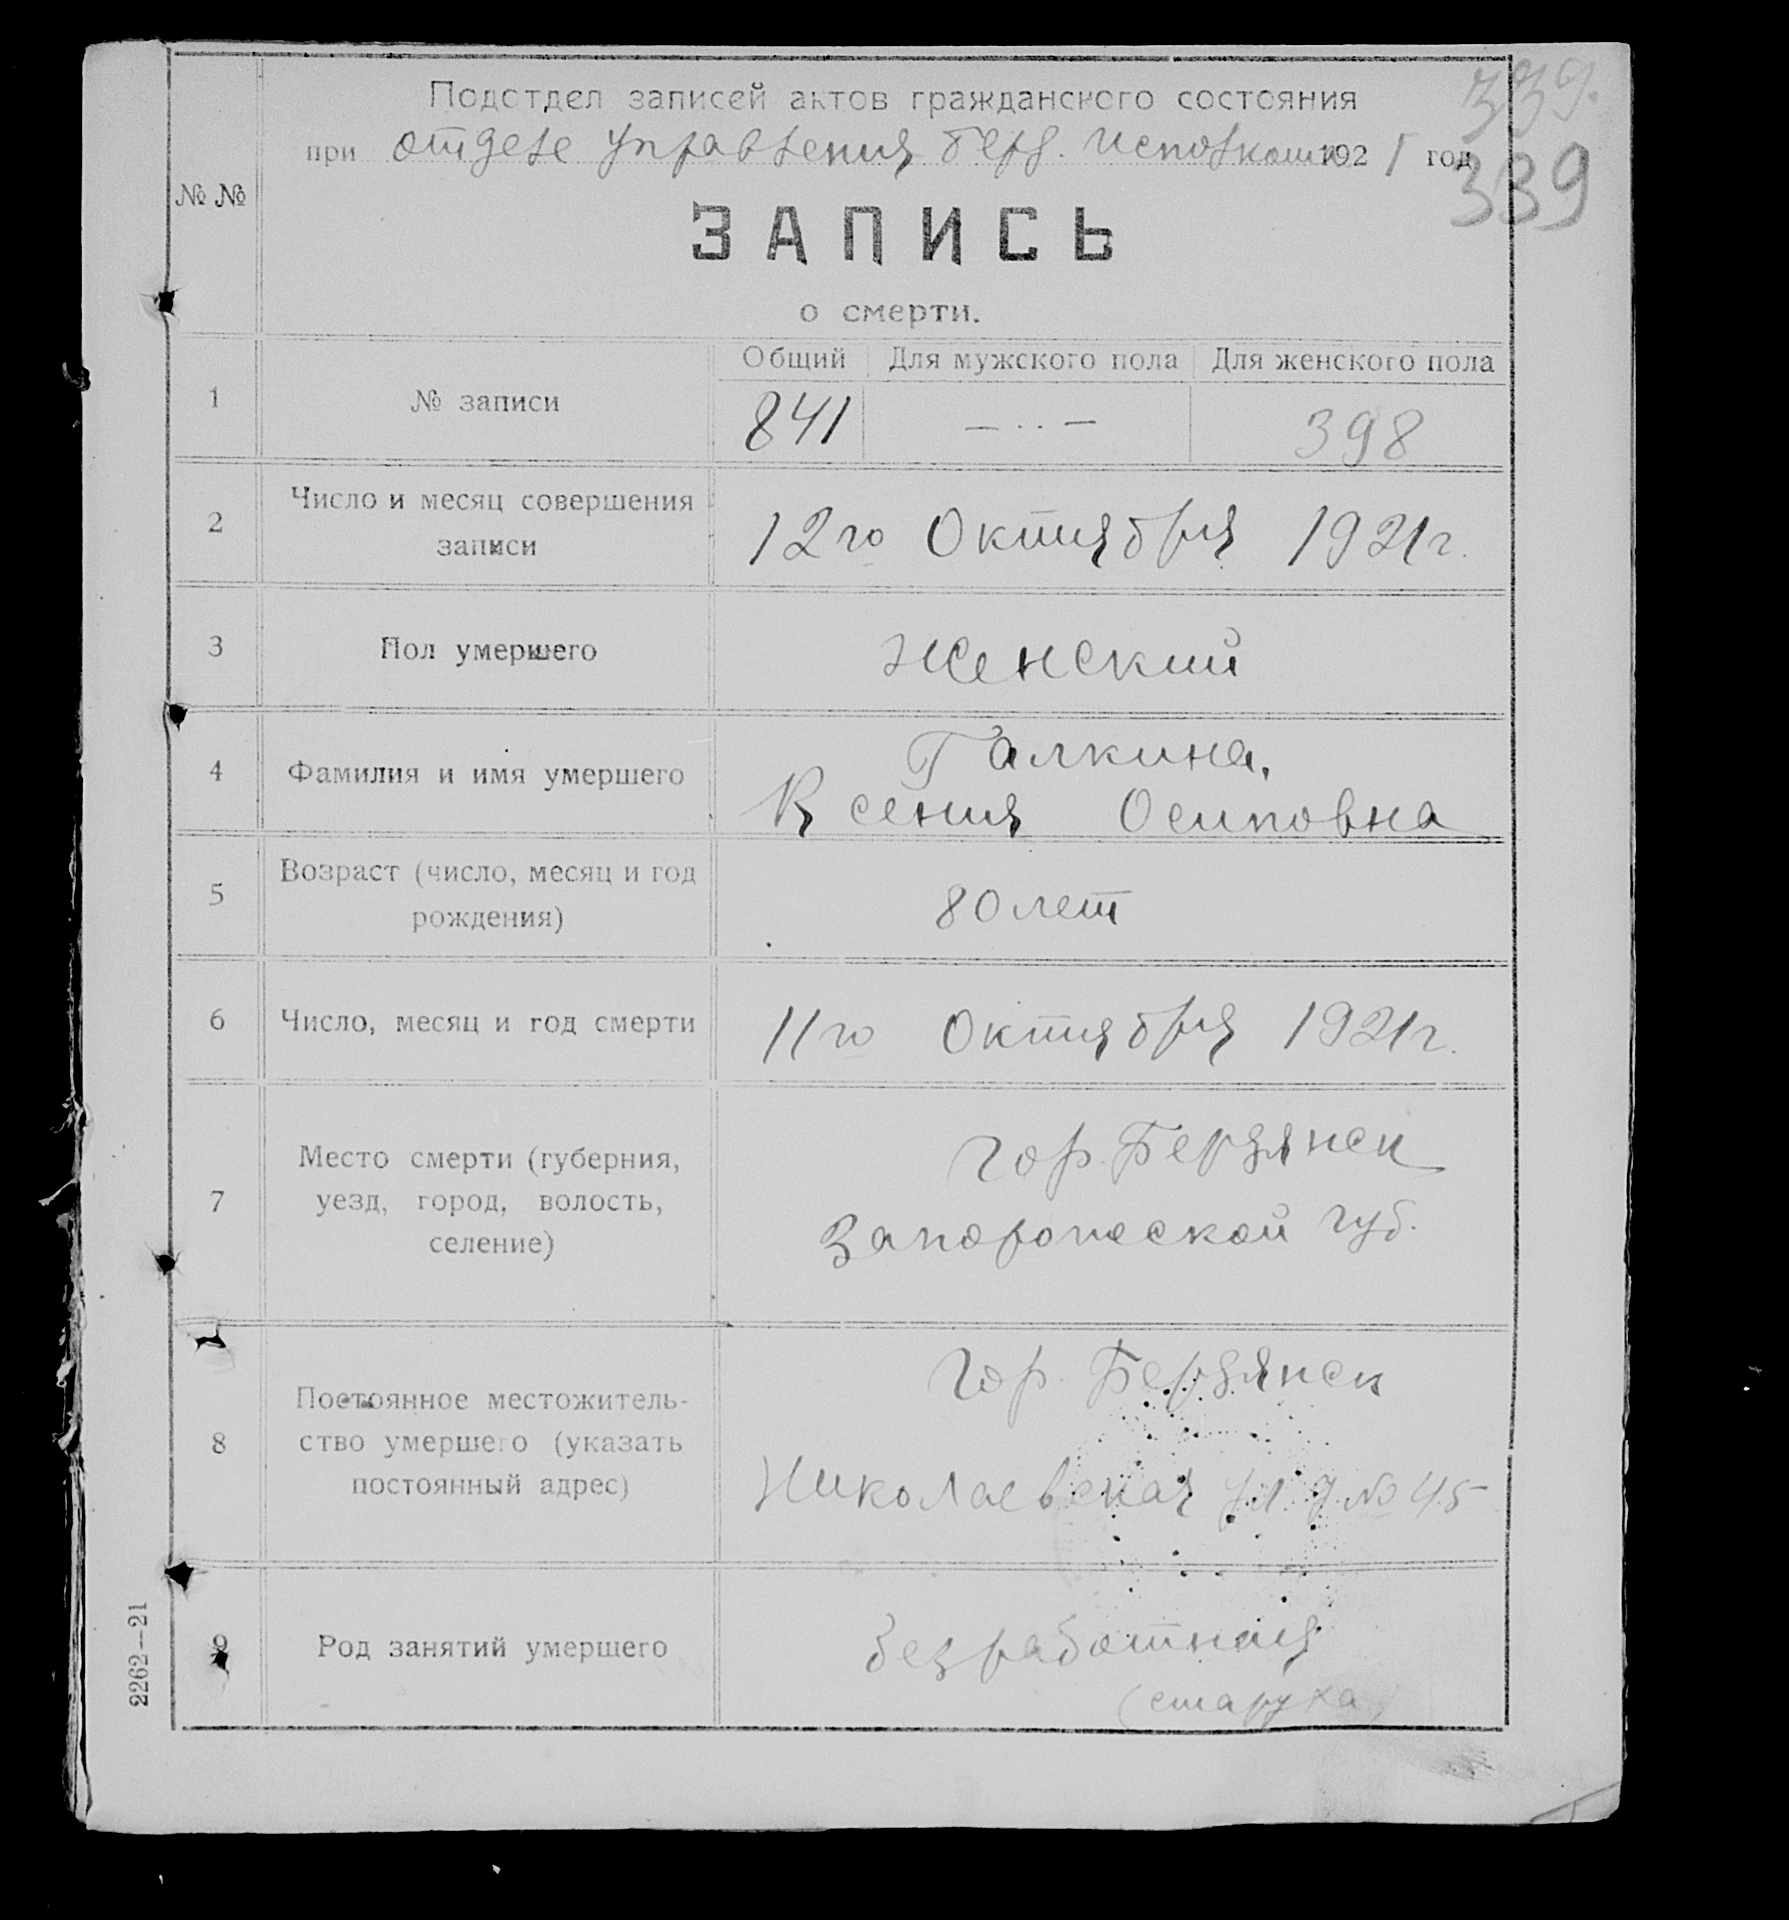 339.
339
Подотдел записей актов гражданского состояния
при отделе управления Берд. Исполкома 1921 год
№ №
ЗАПИСЬ
о смерти.
Общий Для мужского пола Для женского пола
1 № записи 841 — .. — 398
2 Число и месяц совершения
записи
12го Октября 1921г.
3 Пол умершего Женский
4 Фамилия и имя умершего
Галкина,
Ксения Осиповна
5 Возраст (число, месяц и год
рождения)
80 лет
6 Число, месяц и год смерти 11го Октября 1921г.
7 Место смерти (губерния,
уезд, город, волость,
селение)
Гор. Бердянск
Запорожской губ.
8 Постоянное местожитель-
ство умершего (указать
постоянный адрес)
Гор. Бердянск
Николаевская ул д № 45
9 Род занятий умершего
безработная
(старуха)
2262—21